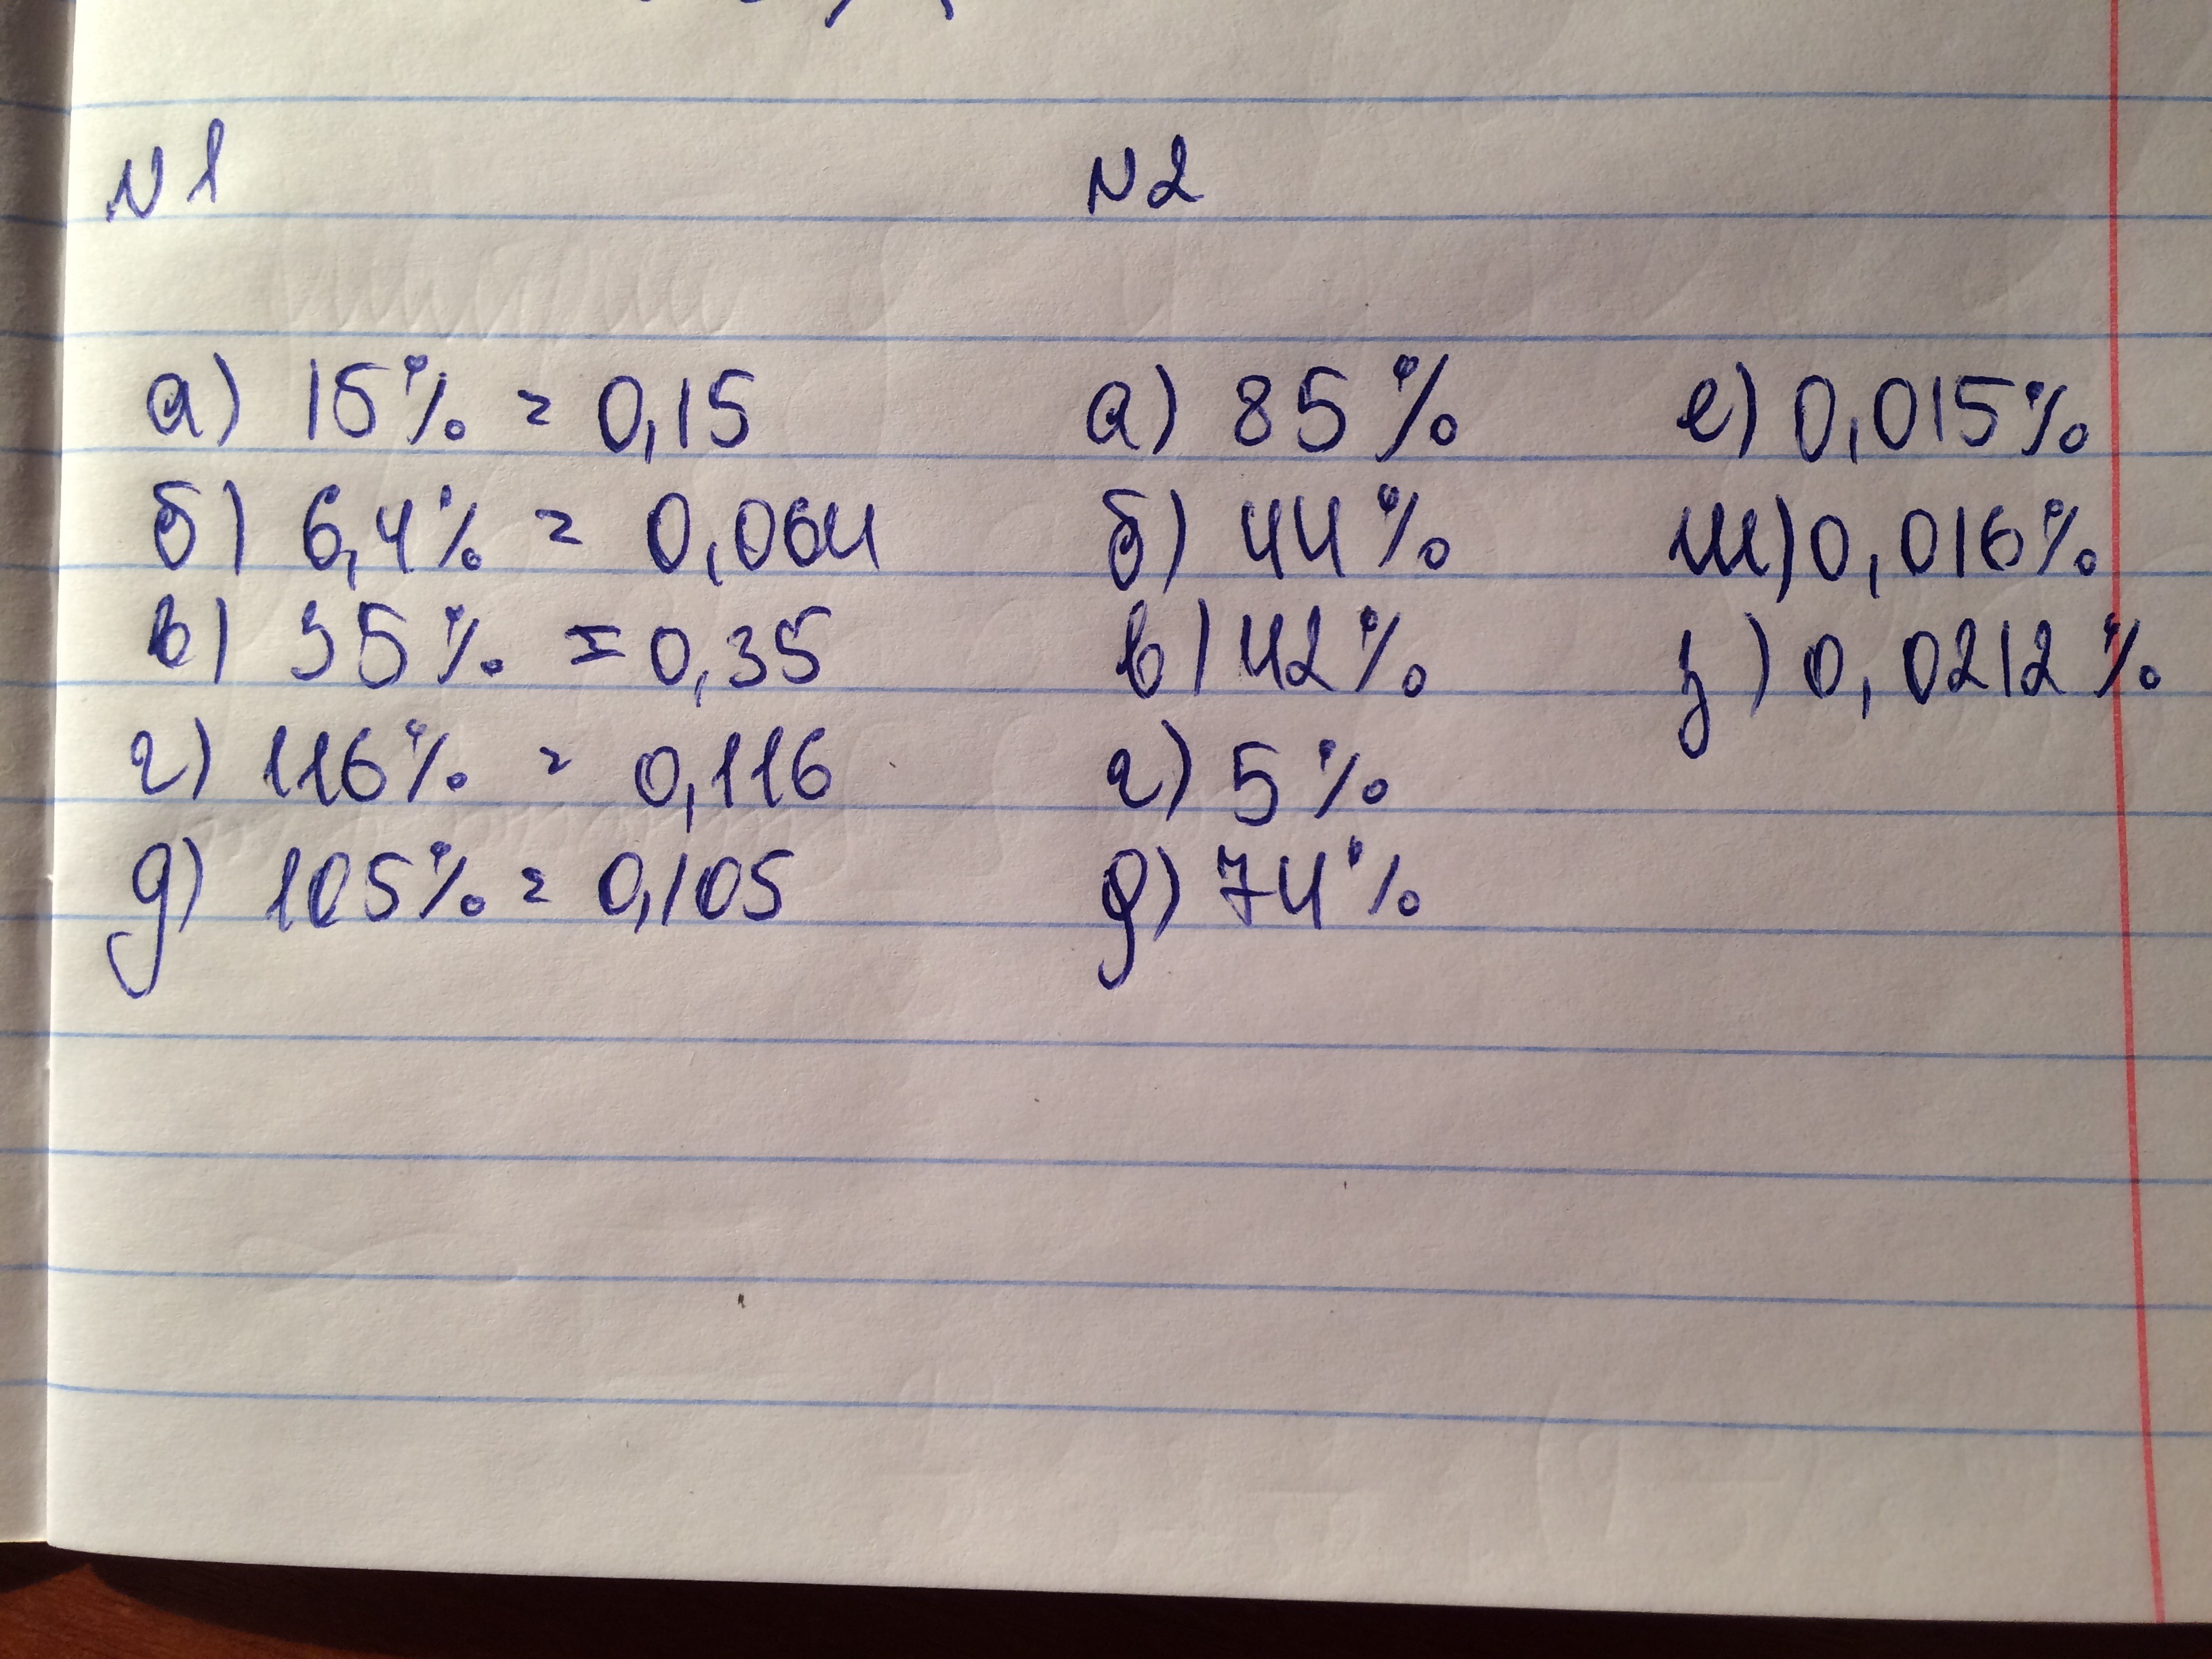 N1
а) 15% = 0,15
б) 6,4% = 0,064
в) 35% = 0,35
г) 116% = 0,116
д) 105% = 0,105
N2
а) 85%
б) 44%
в) 42%
г) 5%
д) 74%
е) 0,015%
ж) 0,016%
з) 0,0212%